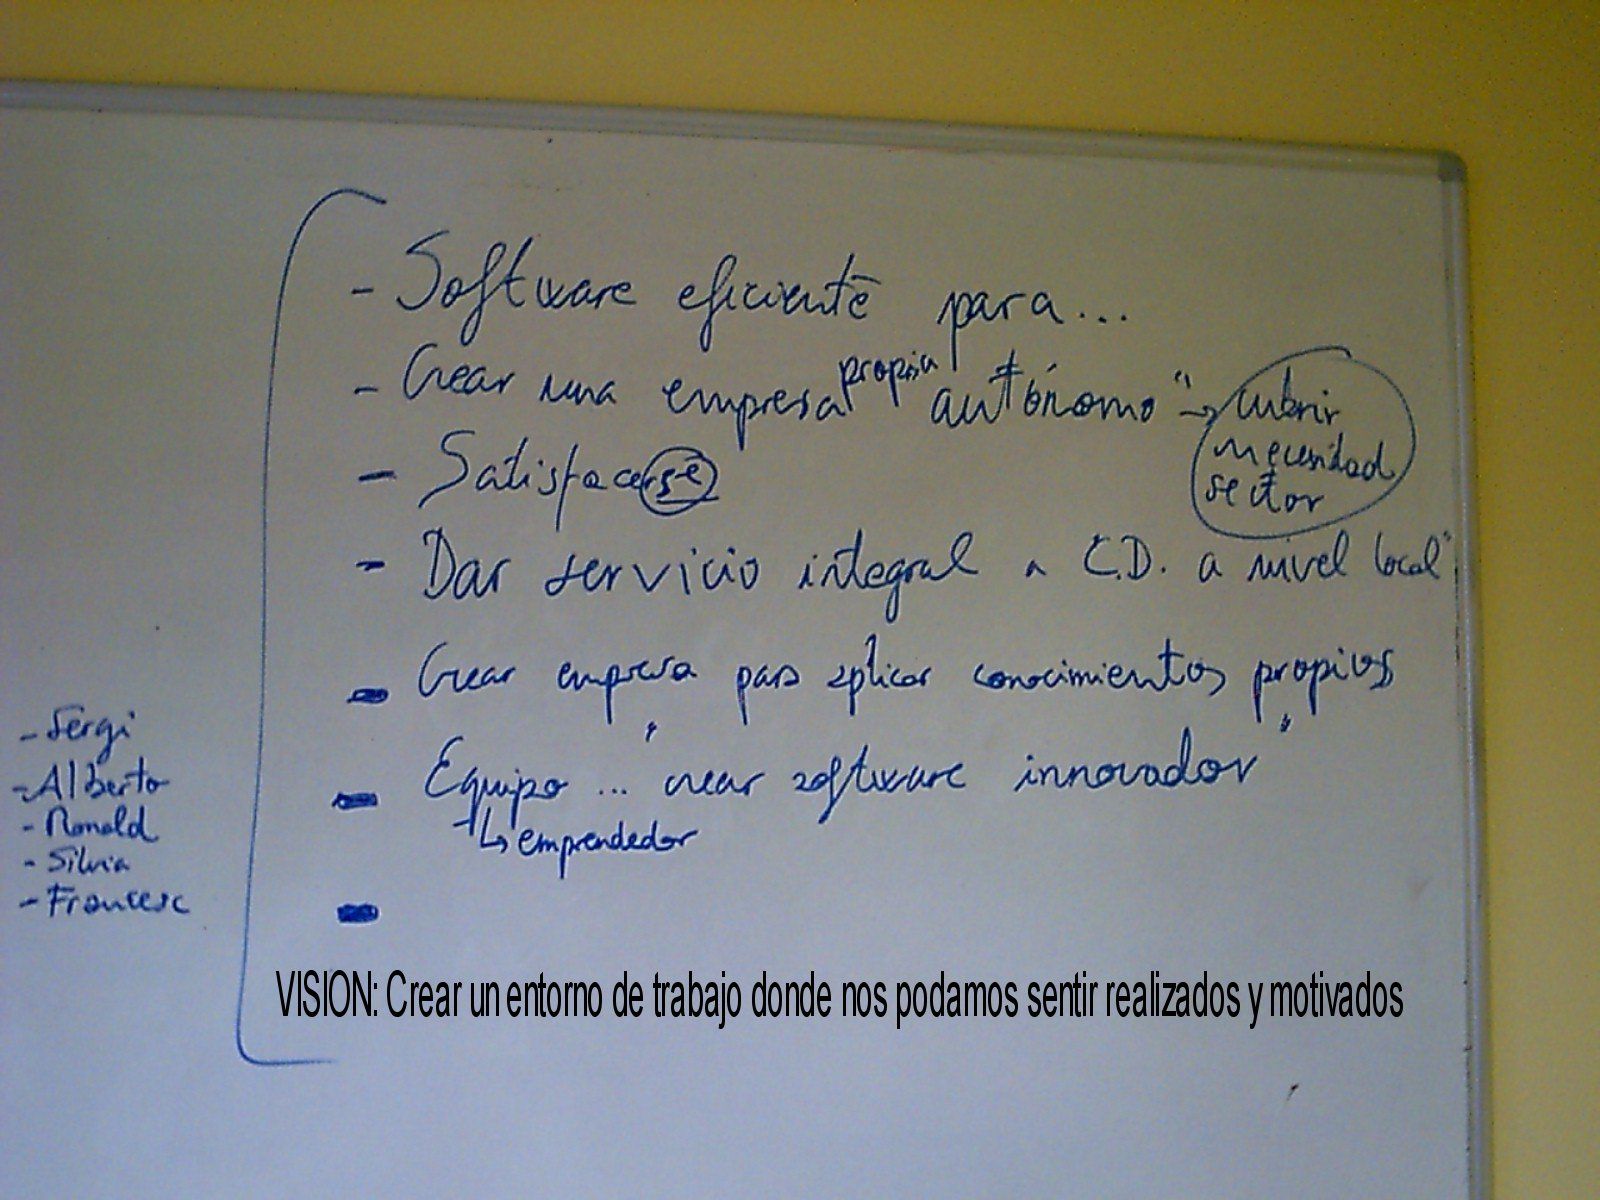 - Software eficiente para...
- Crear una empresa propia autónomo" → cubrir
necesidad
sector
- Satisfacerse
- Dar servicio integral a C.D. a nivel local"
- Crear empresa para aplicar conocimientos propios
- Equipo ... "crear software innovador"
↳ emprendedor
-
- Sergi
- Alberto
- Ronald
- Silvia
- Francesc
VISION: Crear un entorno de trabajo donde nos podamos sentir realizados y motivados